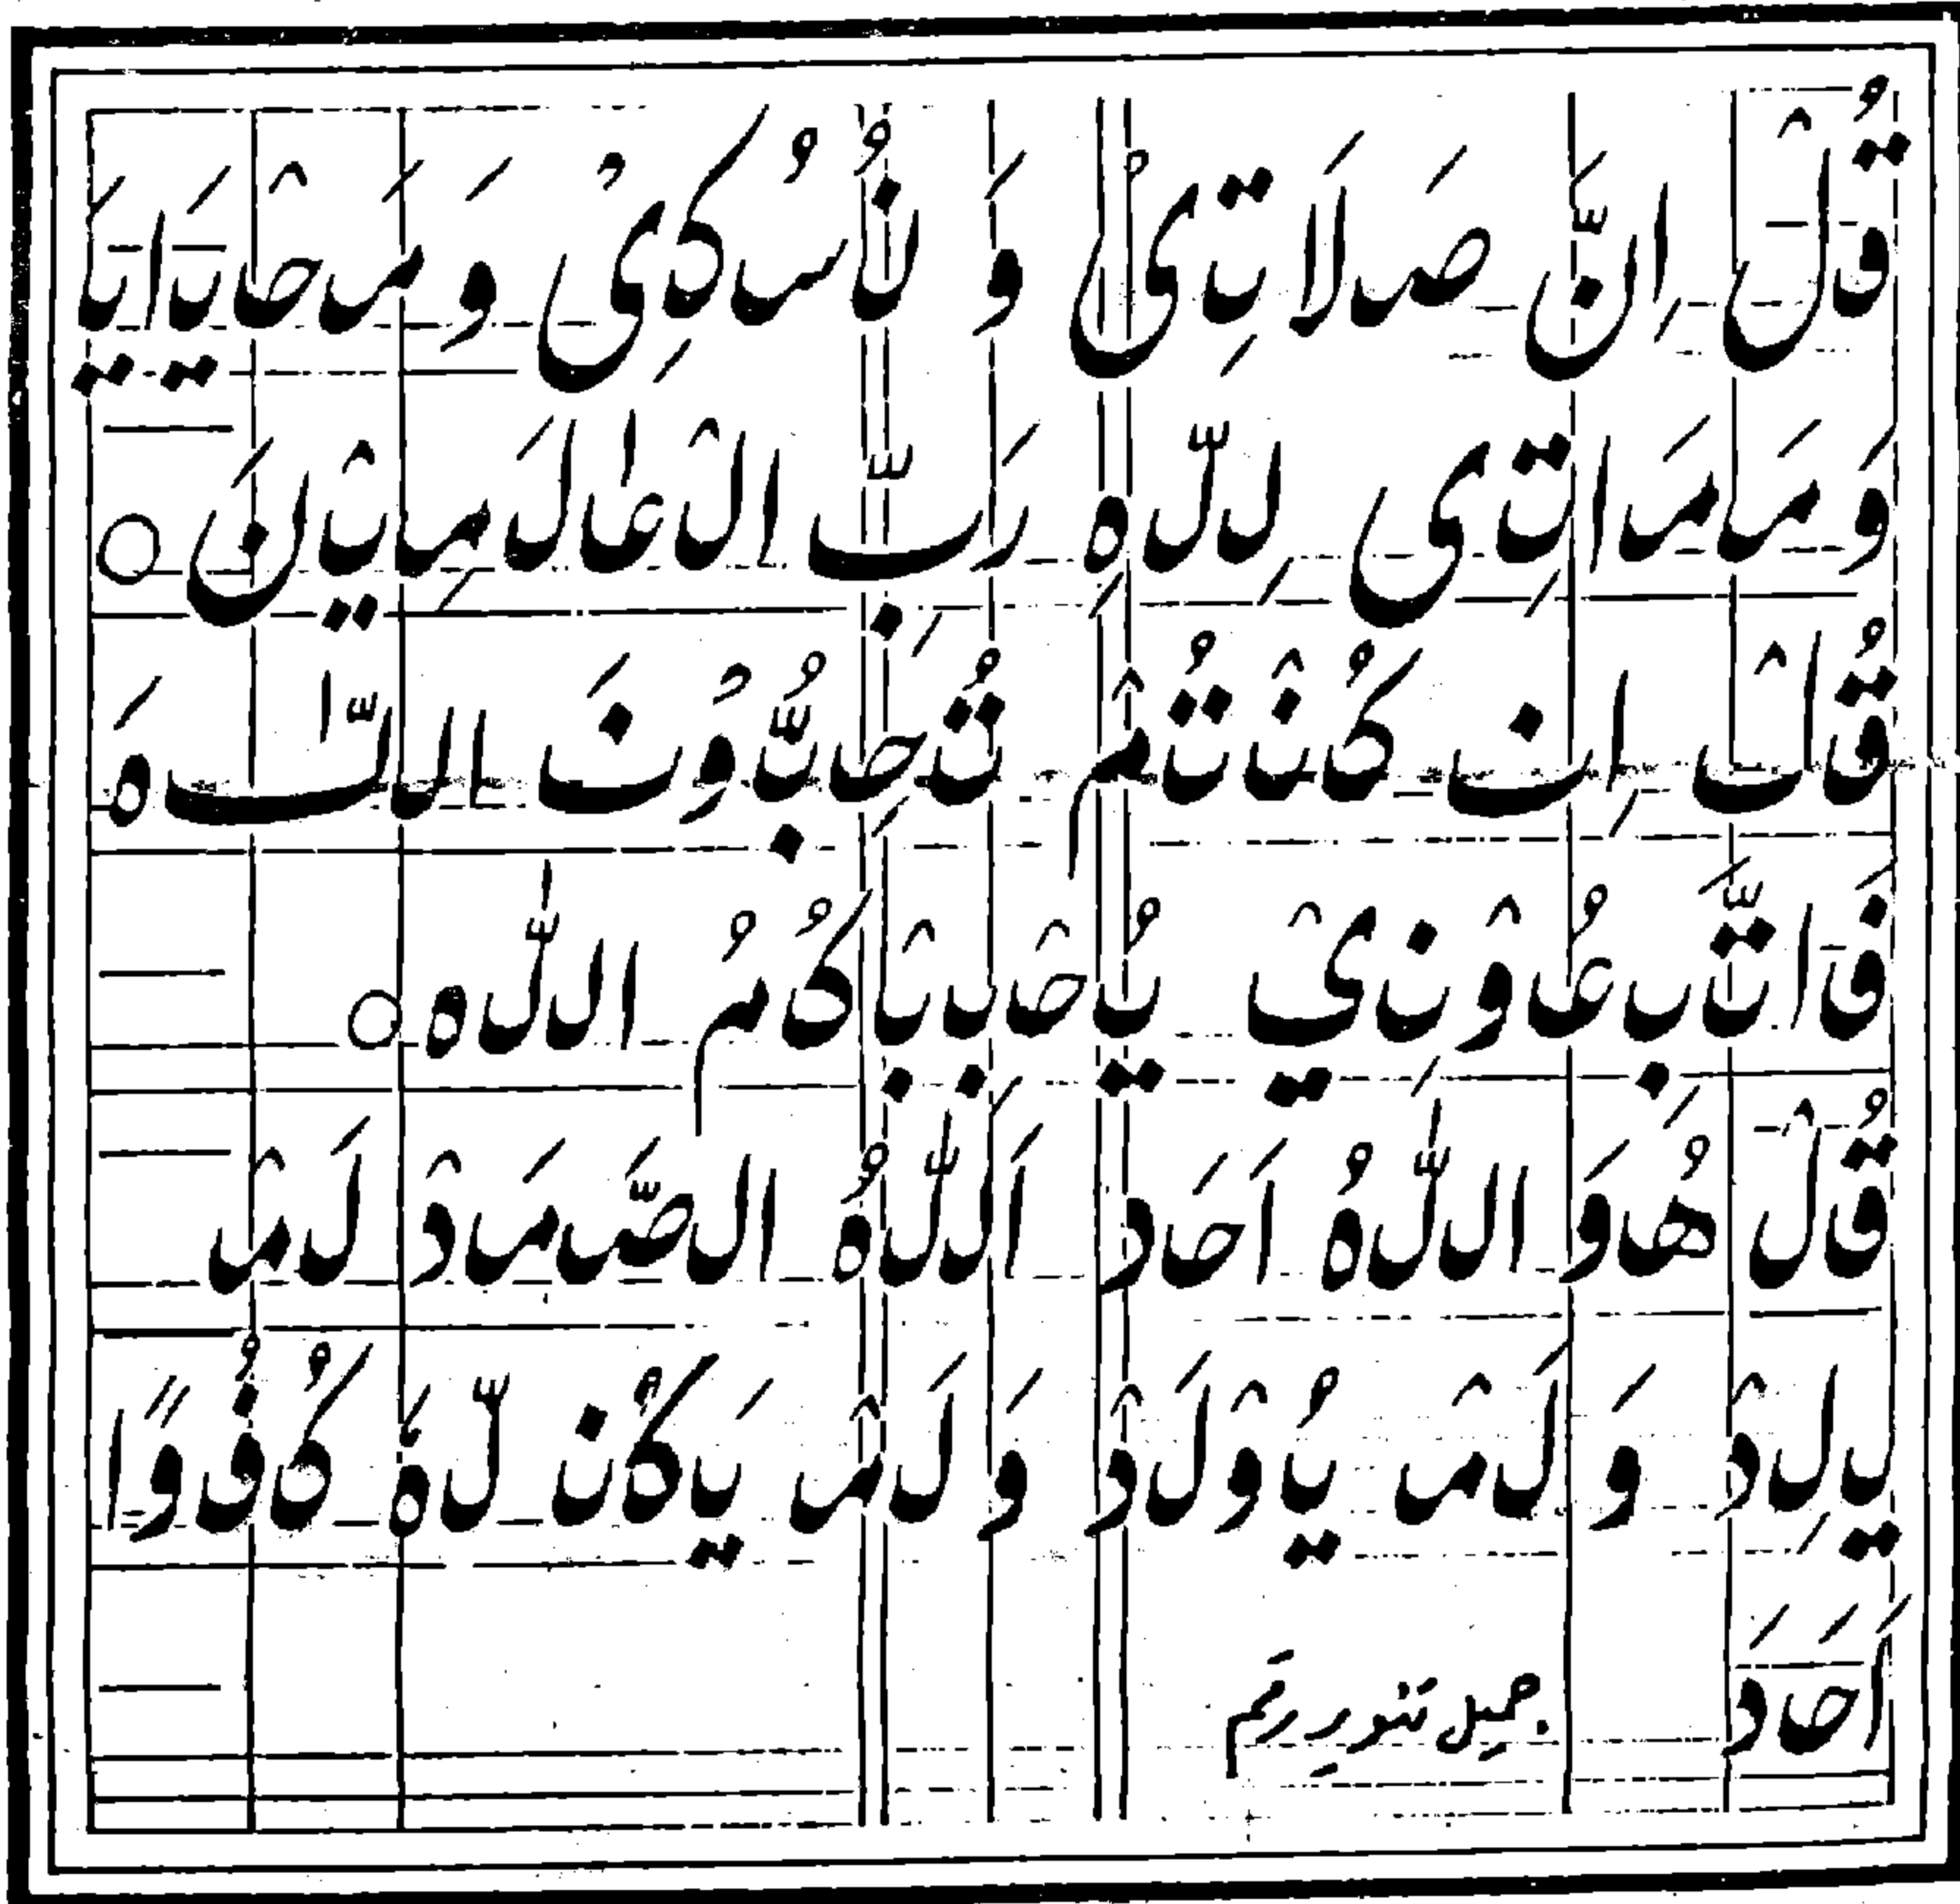 قُلْ اِنَّ صَلَاتِیْ وَ نُسُکِیْ وَ مَحْیَایَ
وَ مَمَاتِی لِلّٰهِ رَبِّ الْعٰلَمِیْنَ ○
قُلْ اِن کُنْتُمْ تُحِبُّوْنَ اللّٰهَ
فَاتَّبِعُوْنِیْ یُحْبِبْکُمُ اللّٰه ○
قُلْ هُوَ اللّٰهُ اَحَد اَللّٰهُ الصَّمَدْ لَمْ
یَلِدْ وَ لَمْ یُوْلَدْ وَ لَمْ یَکُنْ لَّهٗ کُفُوًا
اَحَدَ جمیل تنویر رقم